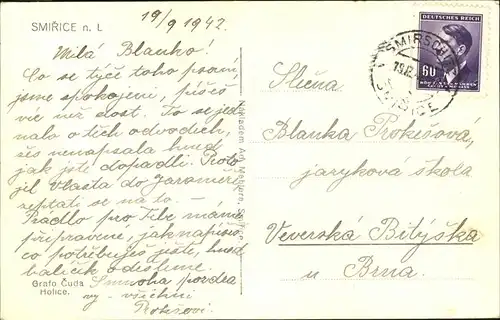 SMIŘICE n. L
19/9 1942.
Milá Blanko!
Co se týče toho psaní,
jsme spokojeni, píšeš
víc než dost. To se jed-
nalo o těch odvodech,
žes nenapsala hned
jak jste dopadli. Proto
jel Vlasta do Jaroměře
zeptati se na to.
Prádlo pro Tebe máme
připravené, jak napíšeš
co potřebuješ ještě, hned
balíček odešleme.
S mnoha pozdra
vy - všichni
Prokešovi.
Grafo Čuda
Holice.
Nákladem
DEUTSCHES REICH
60
BÖHMEN UND MÄHREN
ČECHY A MORAVA
SMIRSCHITZ
SMIŘICE
Slečna
Blanka Prokešová,
jazyková škola
Veverská Bítýška
u Brna.